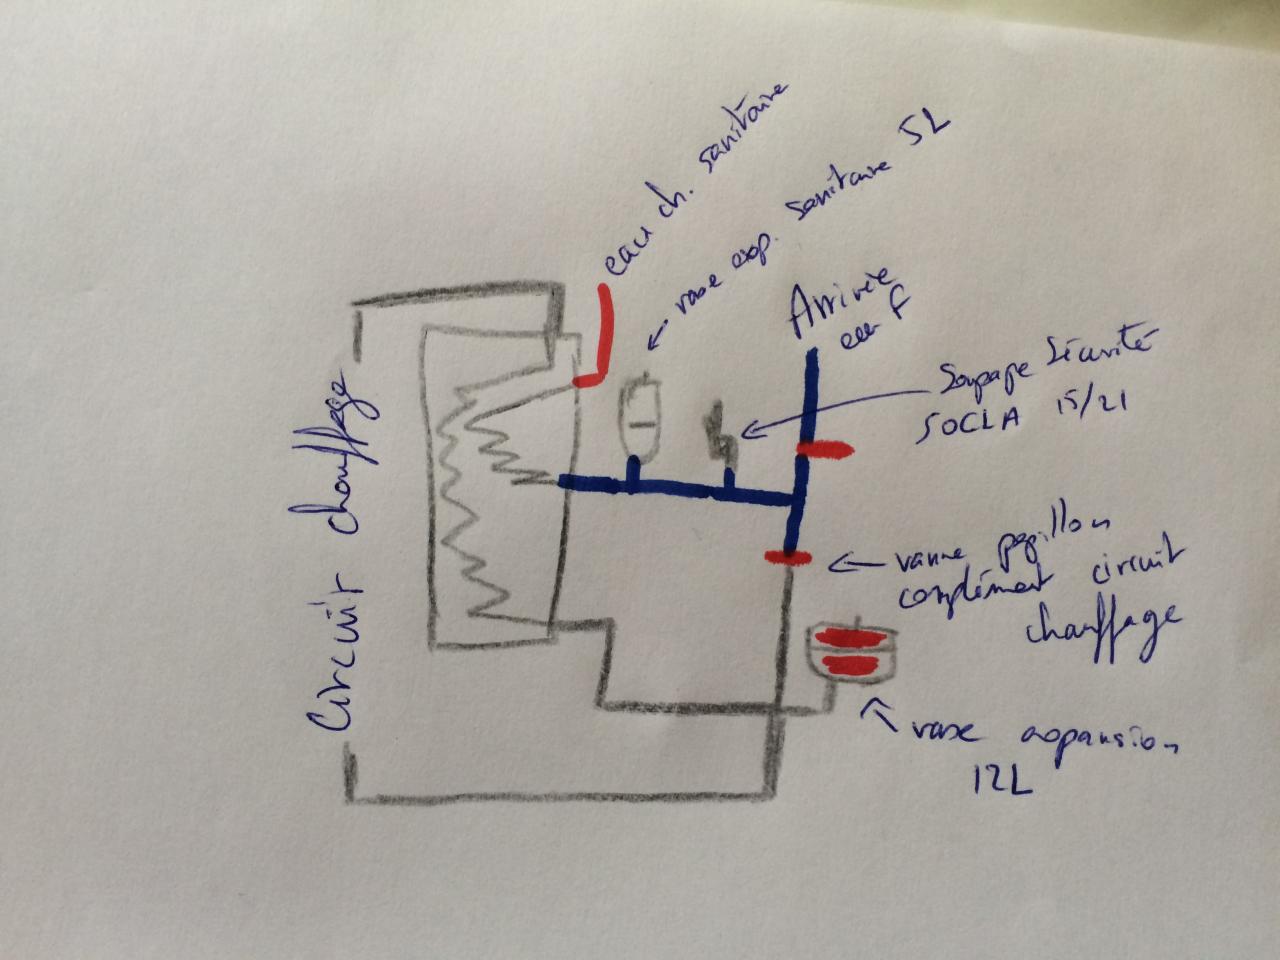 eau ch. sanitaire
vase exp. sanitaire 5L
Arrivée
eau f
Soupape Sécurité
SOCLA 15/21
vanne papillon
complément circuit
chauffage
vase expansion
12L
Circuit chauffage